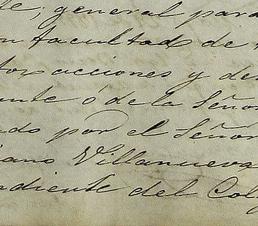 te, general para
facultad de
acciones y de
ante ó de la Señor
ado por el Señor
iano Villanueva
ndiente del Col